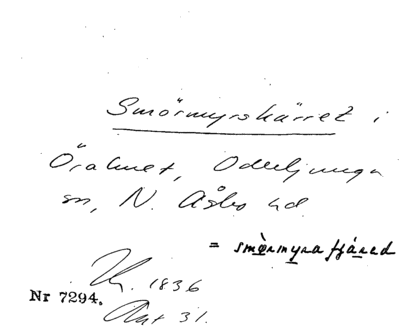 Smörmyrskärret i
Örahult, Oderljunga
sn, N. Åsbo hd.
= smörmyra fjäred
1836
Nr 7294.
Akt 31.